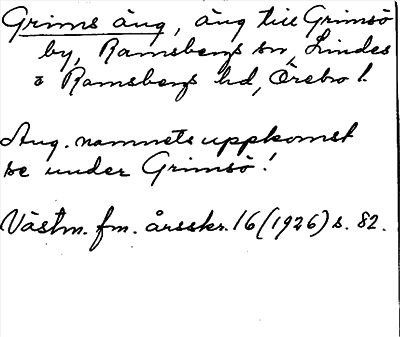 Grims äng, äng till Grimsö
by, Ramsbergs sn, Lindes
o Ramsbergs hd, Örebro l.
Ang. namnets uppkomst
se under Grimsö!
Västm. fm. årsskr. 16 (1926) s. 82.